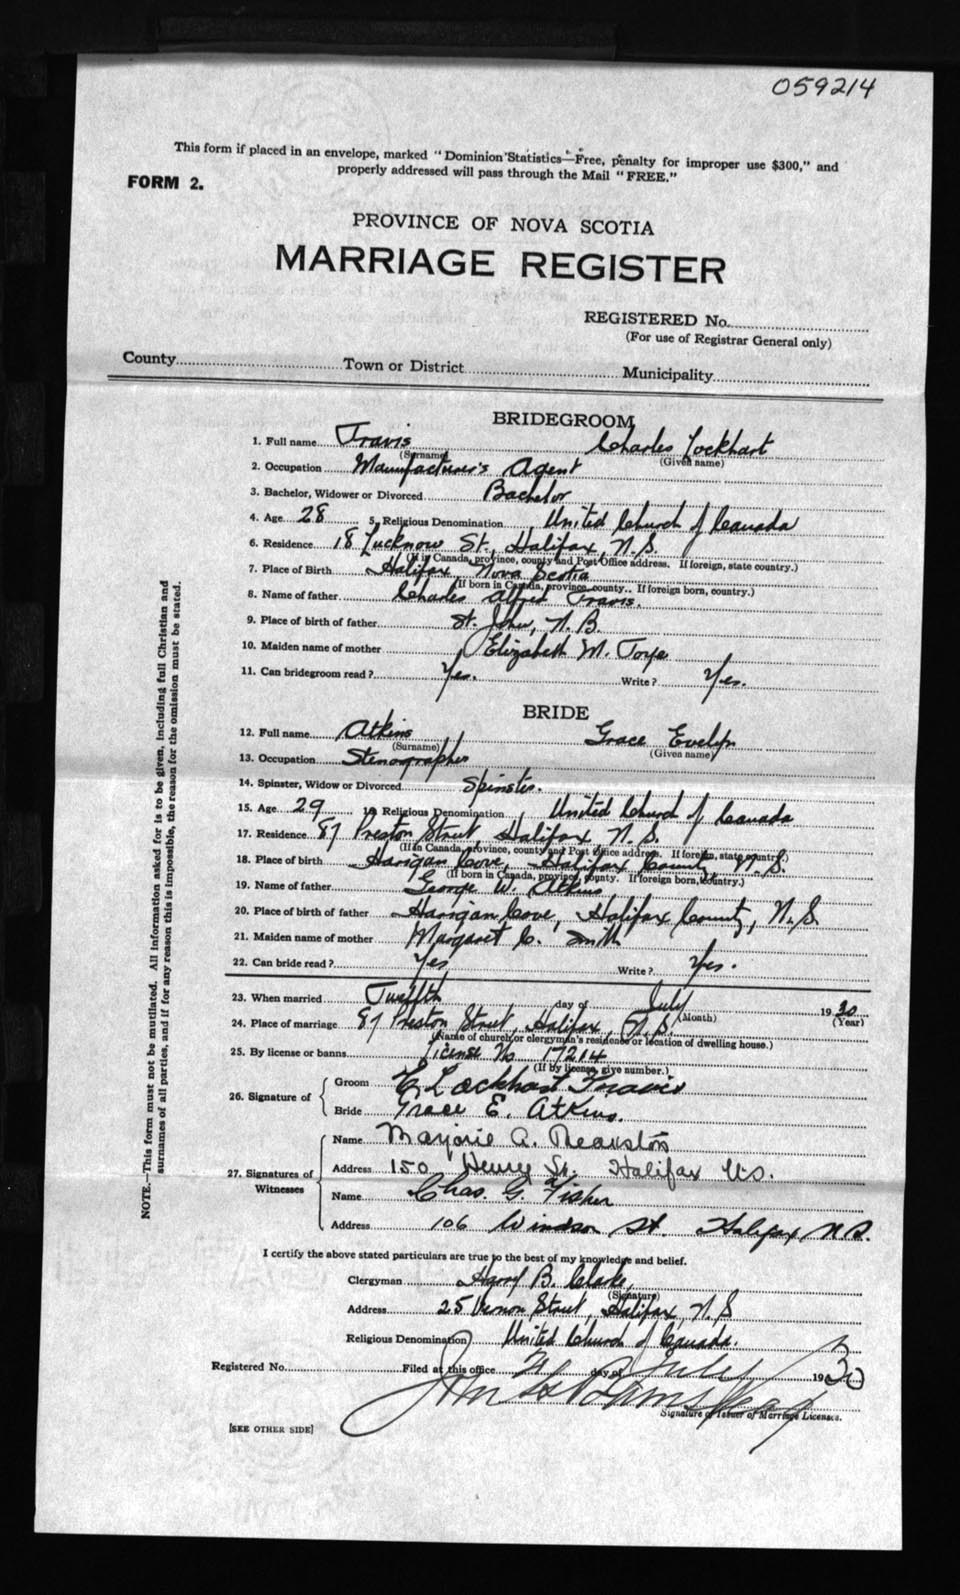 059214
This form if placed in an envelope, marked "Dominion Statistics—Free, penalty for improper use $300," and
properly addressed will pass through the Mail "FREE."
FORM 2.
PROVINCE OF NOVA SCOTIA
MARRIAGE REGISTER
REGISTERED No.
(For use of Registrar General only)
County Town or District Municipality
BRIDEGROOM
1. Full name Travis Charles Lockhart
(Surname) (Given name)
2. Occupation Manufacturer's Agent
3. Bachelor, Widower or Divorced Bachelor
4. Age 28 5. Religious Denomination United Church of Canada
6. Residence 18 Lucknow St., Halifax, N.S.
(If in Canada, province, county and Post Office address. If foreign, state country.)
7. Place of Birth Halifax Nova Scotia
(If born in Canada, province, county. If foreign born, country.)
8. Name of father Charles Alfred Travis.
9. Place of birth of father St. John, N.B.
10. Maiden name of mother Elizabeth M. Toye
11. Can bridegroom read? Yes. Write? Yes.
BRIDE
12. Full name Atkins Grace Evelyn
(Surname) (Given name)
13. Occupation Stenographer
14. Spinster, Widow or Divorced Spinster.
15. Age 29 16 Religious Denomination United Church of Canada
17. Residence 87 Preston Street, Halifax, N.S.
(If in Canada, province, county and Post Office address. If foreign, state country.)
18. Place of birth Harigan Cove, Halifax County, N.S.
(If born in Canada, province, county. If foreign born, country.)
19. Name of father George W. Atkins
20. Place of birth of father Harigan Cove, Halifax County, N.S.
21. Maiden name of mother Margaret C. Smith
22. Can bride read? Yes Write? Yes.
23. When married Twelfth day of July 1930
(Month) (Year)
24. Place of marriage 87 Preston Street, Halifax, N.S.
(Name of church, or clergyman's residence or location of dwelling house.)
25. By license or banns License No 17214
(If by license, give number.)
26. Signature of
Groom C Lockhart Travis
Bride Grace E. Atkins.
27. Signatures of Witnesses
Name Marjorie A.
Address 150 Henry St. Halifax N.S.
Name Chas. G. Fisher
Address 106 Windsor St. Halifax N.S.
I certify the above stated particulars are true to the best of my knowledge and belief.
Clergyman Harry B. Clarke,
(Signature)
Address 25 Vernon Street, Halifax, N.S
Religious Denomination United Church of Canada.
Registered No. Filed at this office 21 day of July 1930
John
Signature of Issuer of Marriage Licenses.
[SEE OTHER SIDE]
NOTE.—This form must not be mutilated. All information asked for is to be given, including full Christian and
surnames of all parties, and if for any reason this is impossible, the reason for the omission must be stated.